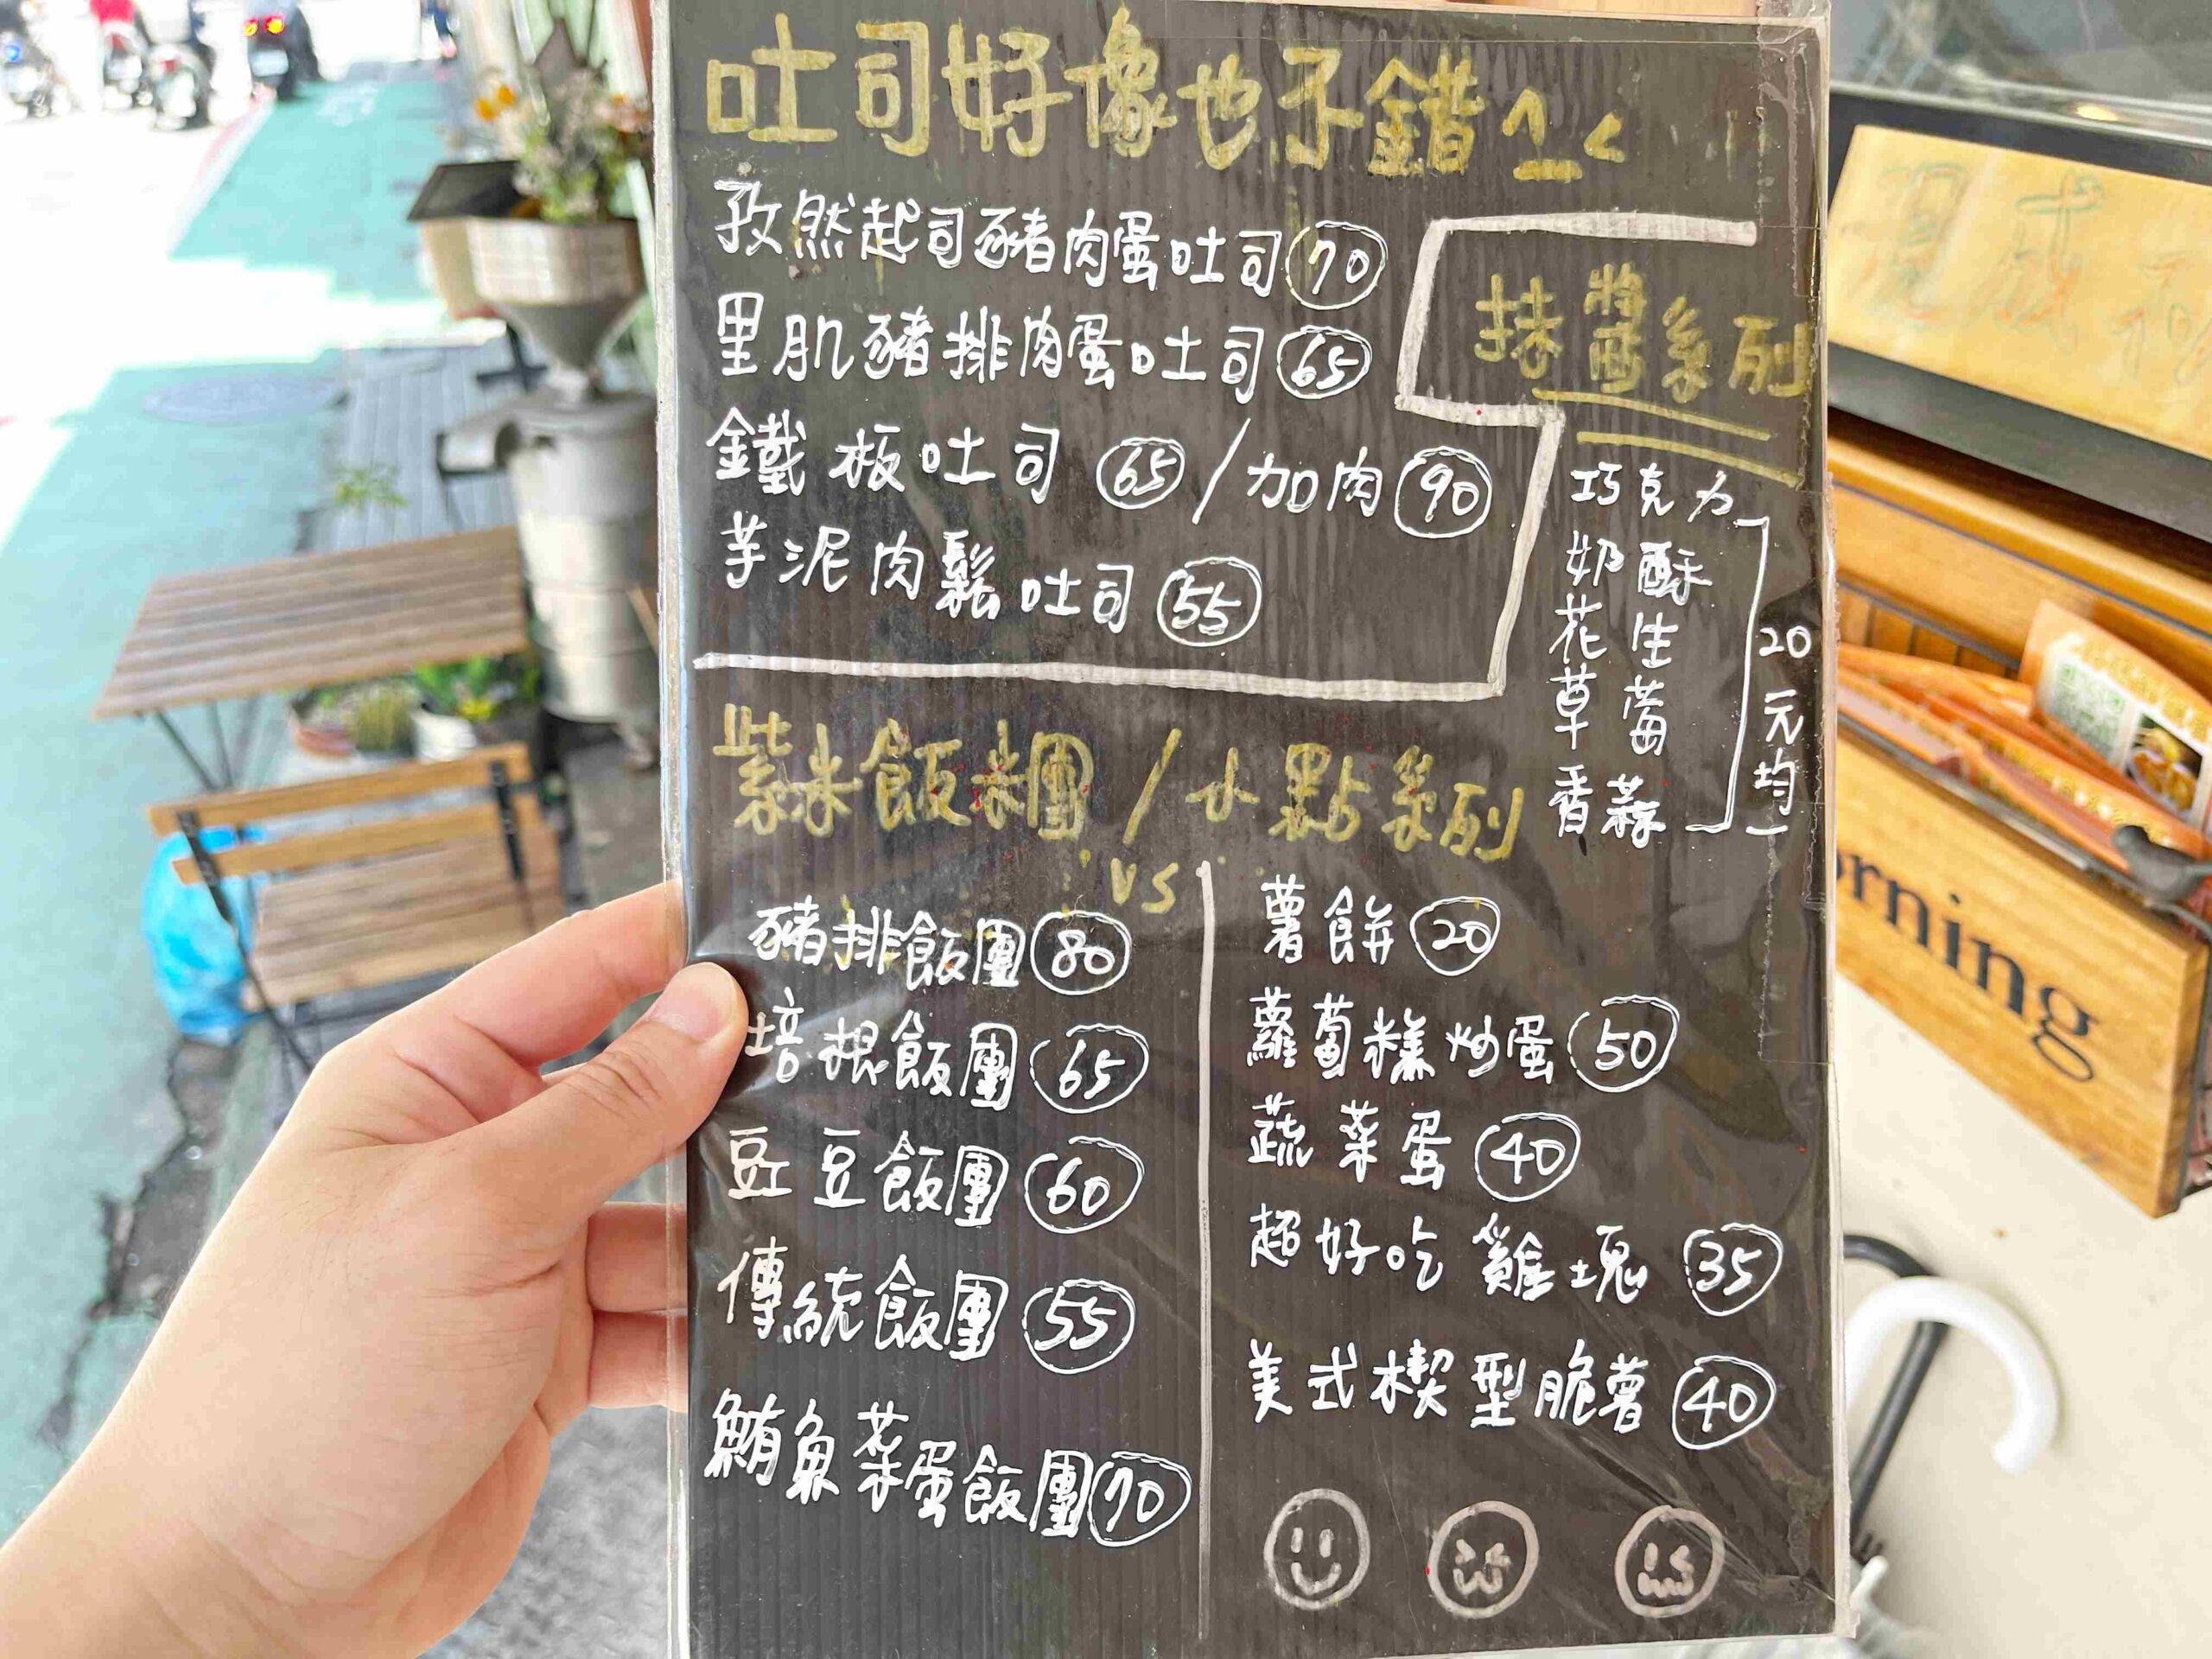 吐司好像也不錯^_<
孜然起司豬肉蛋吐司 70
里肌豬排肉蛋吐司 65
鐵板吐司 65 / 加肉 90
芋泥肉鬆吐司 55
抹醬系列
巧克力
奶酥
花生
草莓
香蒜
20元均一
紫米飯糰 / 小點系列
vs
豬排飯團 80
培根飯團 65
豇豆飯團 60
傳統飯團 55
鮪魚菜蛋飯團 70
薯餅 20
蘿蔔糕炒蛋 50
蔬菜蛋 40
超好吃雞塊 35
美式楔型脆薯 40
orning